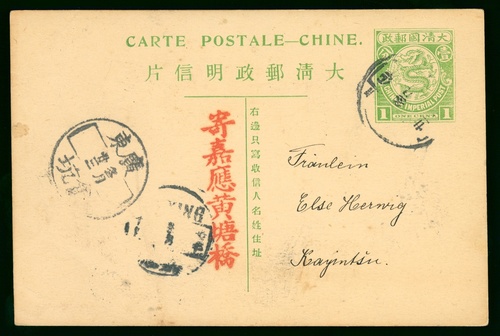 CARTE POSTALE—CHINE.
片信明政郵清大
政郵國清大
CHINESE IMPERIAL POST
1 ONE CENT 1
右邊只寫收信人名姓住址
寄嘉應黃塘橋
廣東
Fräulein
Else Herwig
Kayintsu.